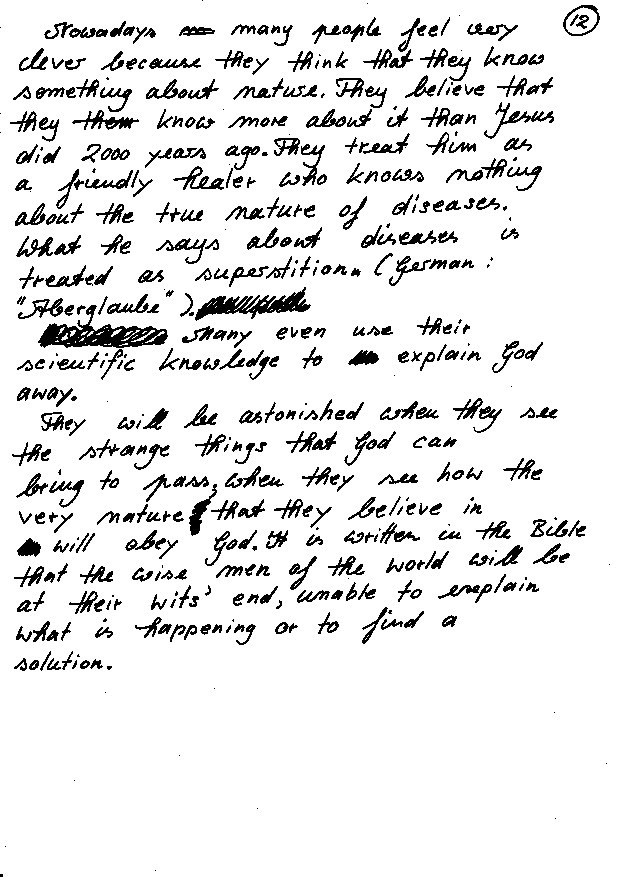 Nowadays many people feel very (12)
clever because they think that they know
something about nature. They believe that
they know more about it than Jesus
did 2000 years ago. They treat him as
a friendly healer who knows nothing
about the true nature of diseases.
What he says about diseases is
treated as superstition. (German:
"Aberglaube").
Many even use their
scientific knowledge to explain God
away.
They will be astonished when they see
the strange things that God can
bring to pass, when they see how the
very nature that they believe in
will obey God. It is written in the Bible
that the wise men of the world will be
at their wits' end, unable to explain
what is happening or to find a
solution.